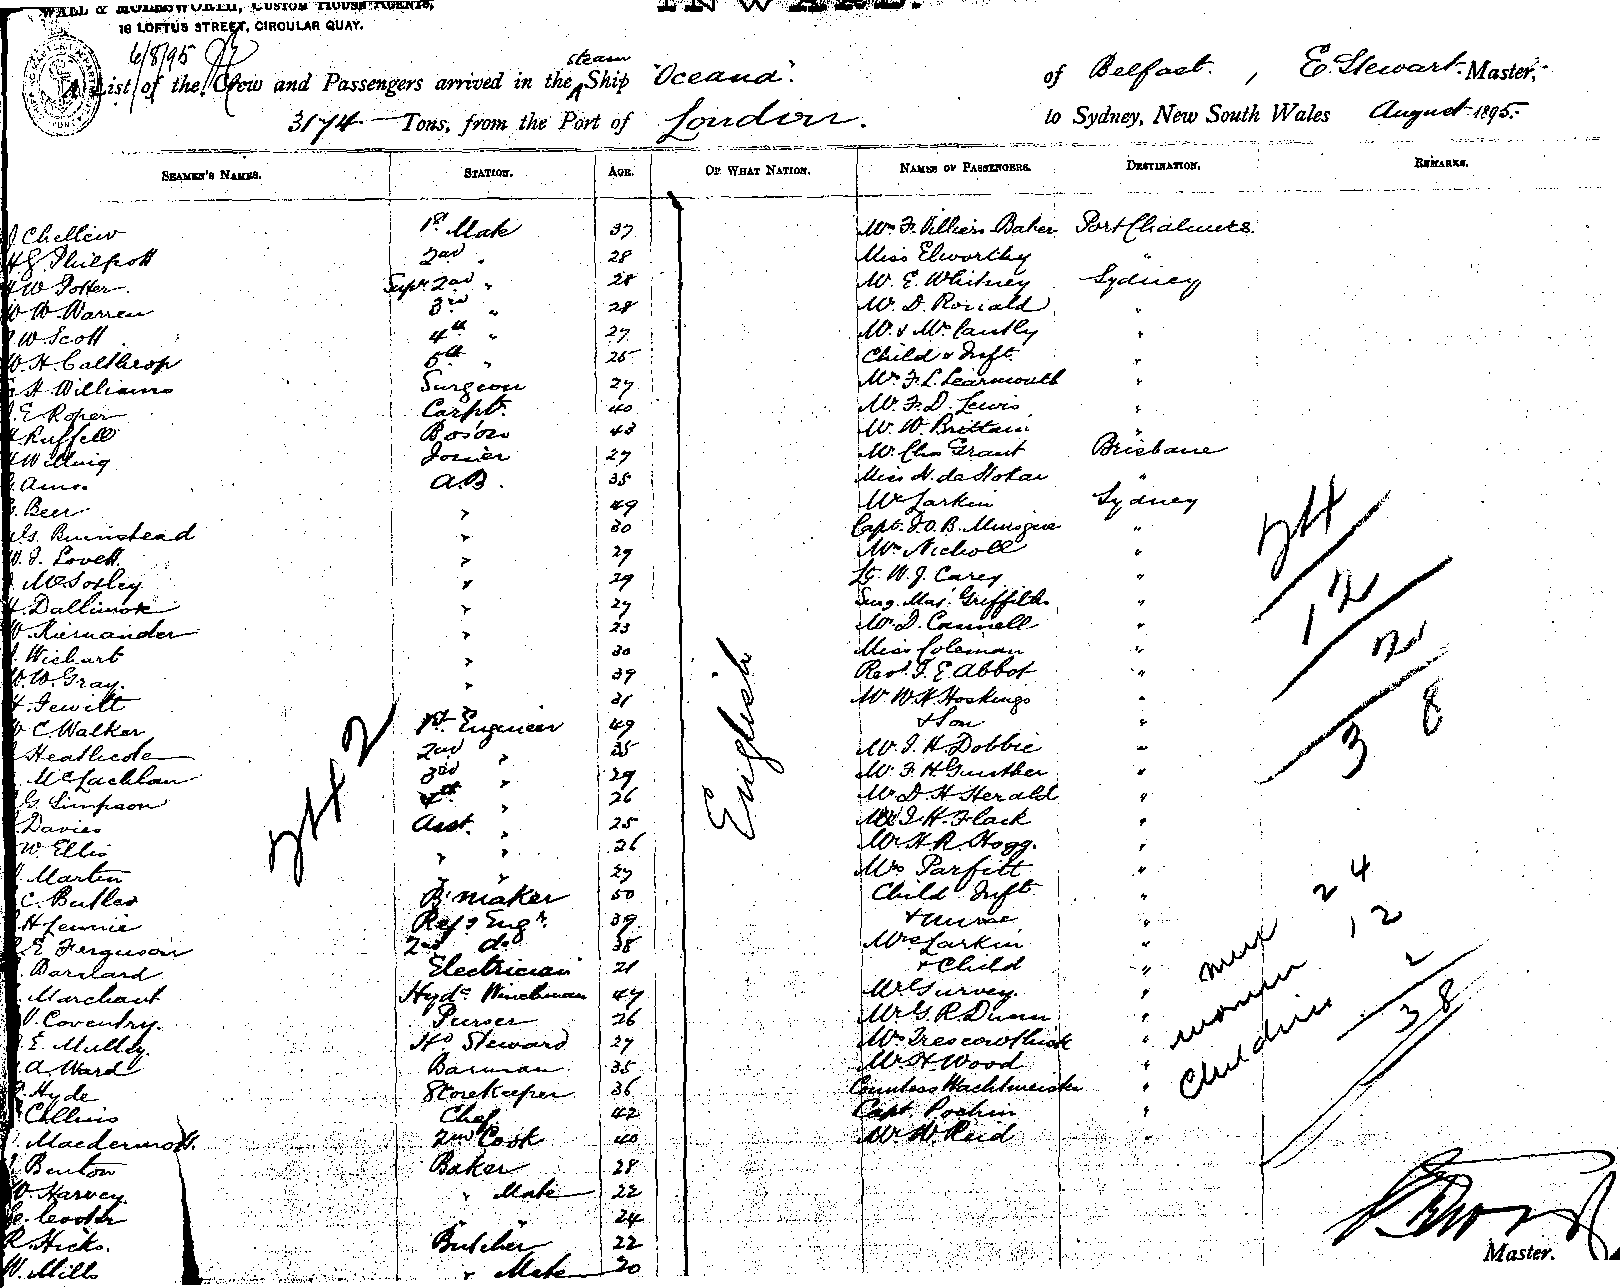 WALL & MOLESWORTH, CUSTOM HOUSE AGENTS,
INWARD.
16 LOFTUS STREET, CIRCULAR QUAY.
6/8/95
steam
A List of the Crew and Passengers arrived in the Ship "Oceana". of Belfast. , E. Stewart. Master,
3174 Tons, from the Port of London. to Sydney, New South Wales August 1895.
SEAMEN'S NAMES. STATION. AGE. OF WHAT NATION. NAMES OF PASSENGERS. DESTINATION. REMARKS.
Chellew 1st Mate 37 Mrs F. Villiers Baker Port Chalmers
Philpott 2nd " 28 Miss Elworthy "
W Potter. Supy 2nd " 28 Mr. E. Whitney Sydney
W Warren 3rd " 28 Mr. D. Ronald "
W Scott 4th " 27 Mr. & Mrs Cantly "
W. H. Calthrop 5th " 25 Child & Inft. "
H Williams Surgeon 27 Mr F. L. Learmouth "
E Roper Carptr. 40 Mr. F. D. Lewis "
Ruffell Bos'on 43 Mr. W. Brittain "
Willing Joiner 27 Mr. Chs Grant Brisbane
Amos A.B. 35 Miss N. de Hotar "
Beer " 49 Mr Larkin Sydney
G. Buinstead " 30 Capt. J. O. B. Musgrave "
W. J. Lovell " 29 Mrs Nicholl "
McSorley " 29 Lt. W. J. Carey "
Dallimore " 27 Surg. Maj. Griffiths "
W. Kiernander " 23 Mr. D. Connell "
Wiebart " 30 Miss Coleman "
W. W. Gray. " 39 Revd. J. E Abbot "
H. Jewitt " 31 Mr W. H. Hoskings "
C Walker 1st Engineer 49 & Son "
Heathcote 2nd " 35 Mr. J. H Dobbie "
McLachlan 3rd " 29 Mr. F. H. Gunther "
G. Simpson 4th " 26 Mr. D. H Herald "
Davies Asst. " 25 Mr J. H. Flack "
W. Ellis " " 26 Mr H R Hogg. "
Martin " " 27 Mrs Parfitt "
C. Butler B. maker 50 Child Inft "
H Fennie Refg Engr. 39 & nurse "
E Ferguson 2nd do 38 Mrs Larkin "
Barnard Electrician 21 & Child "
Marchant Hydc Winchman 47 Mr Gurvey. "
Coventry. Purser 26 Mr G. R Dunn "
E Mulley. Hd Steward 27 Mrs Trescowthick "
A. Ward Barman 35 Mr H Wood "
Hyde Storekeeper 36 Countess Wachtmeister "
Collins Chef 42 Capt. Pochin "
Macdermott. 2nd Cook 40 Mr W Reid "
Benton Baker 28
W. Harvey. " Mate 22
" " 24
R. Hicks. Butcher 22
W. Mills " Mate 20
English
12
2
38
men 24
women 12
Children 2
38
Master.